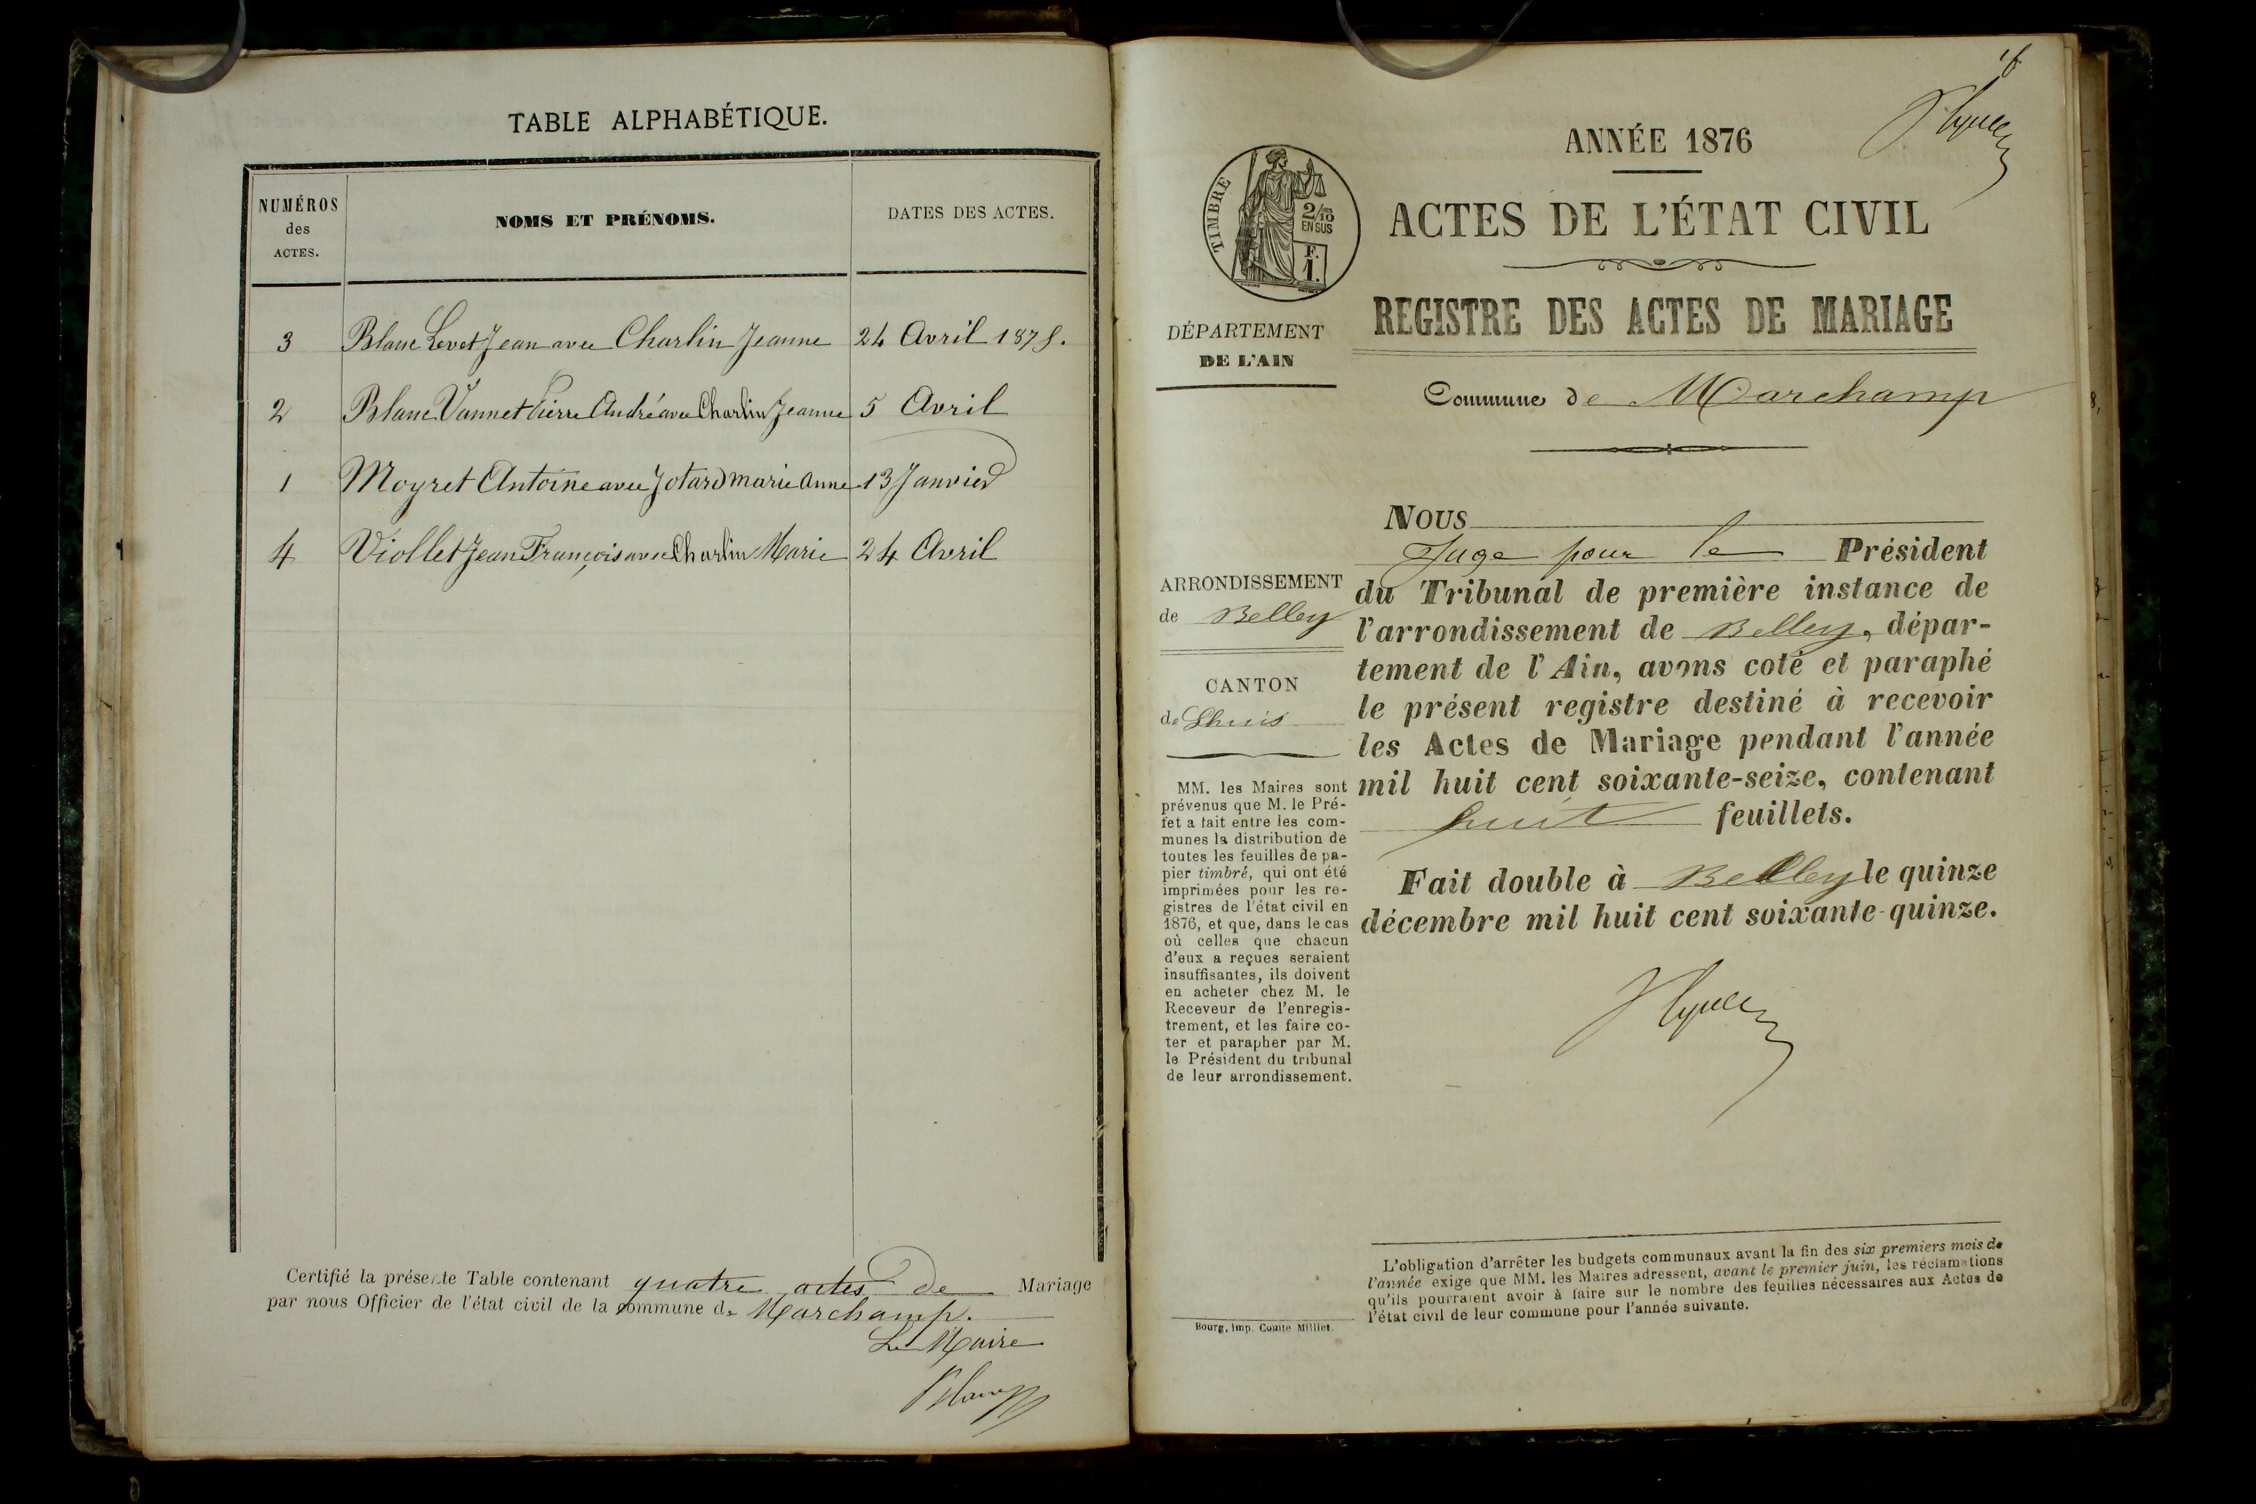 TABLE ALPHABÉTIQUE.
NUMÉROS
des
ACTES.
NOMS ET PRÉNOMS.
DATES DES ACTES.
3 Blanc Levet Jean avec Charlin Jeanne 24 Avril 1875.
2 Blanc Vannet Pierre André avec Charlin Jeanne 5 Avril
1 Moyret Antoine avec Jotard marie anne 13 Janvier
4 Viollet Jean François avec Charlin Marie 24 Avril
Certifié la présente Table contenant quatre actes de Mariage
par nous Officier de l'état civil de la commune de Marchamp.
Le Maire
Blanc
ANNÉE 1876
ACTES DE L'ÉTAT CIVIL
REGISTRE DES ACTES DE MARIAGE
Commune de Marchamp
TIMBRE
2/10
EN SUS
F.
1.
DÉPARTEMENT
DE L'AIN
ARRONDISSEMENT
de Belley
CANTON
de Lhuis
MM. les Maires sont
prévenus que M. le Pré-
fet a fait entre les com-
munes la distribution de
toutes les feuilles de pa-
pier timbré, qui ont été
imprimées pour les re-
gistres de l'état civil en
1876, et que, dans le cas
où celles que chacun
d'eux a reçues seraient
insuffisantes, ils doivent
en acheter chez M. le
Receveur de l'enregis-
trement, et les faire co-
ter et parapher par M.
le Président du tribunal
de leur arrondissement.
NOUS
Juge pour le Président
du Tribunal de première instance de
l'arrondissement de Belley, dépar-
tement de l'Ain, avons coté et paraphé
le présent registre destiné à recevoir
les Actes de Mariage pendant l'année
mil huit cent soixante-seize, contenant
huit feuillets.
Fait double à Belley le quinze
décembre mil huit cent soixante-quinze.
L'obligation d'arrêter les budgets communaux avant la fin des six premiers mois de
l'année exige que MM. les Maires adressent, avant le premier juin, les réclamations
qu'ils pourraient avoir à faire sur le nombre des feuilles nécessaires aux Actes de
l'état civil de leur commune pour l'année suivante.
Bourg, imp. Comte Milliet.